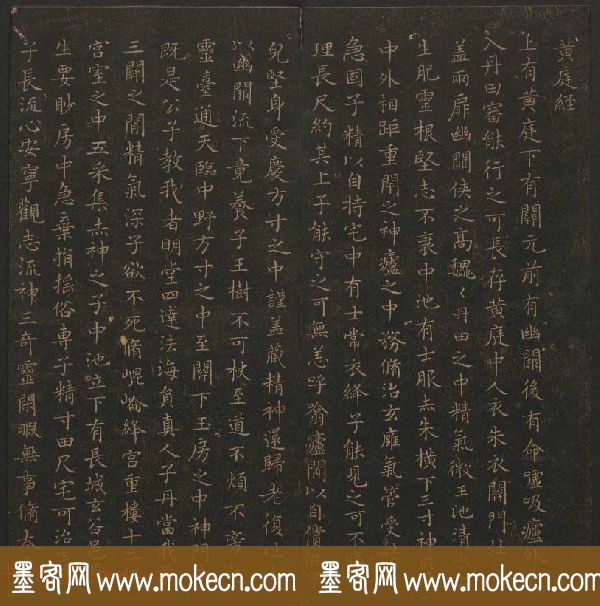 黄庭經
上有黄庭下有關元前有幽關後有命嘘吸廬外
入丹田審能行之可長存黄庭中人衣朱衣關門壯
蓋兩扉幽關俠之高魏〻丹田之中精氣微玉池清水
生肥靈根堅志不衰中池有士服赤朱横下三寸神
中外相距重閉之神廬之中務脩治玄廱氣管受
急固子精以自持宅中有士常衣絳子能見之可不
理長尺約其上子能守之可無恙呼翕廬間以自償
皃堅身受慶方寸之中謹盖藏精神還歸老復壯
以幽關流下竟養子玉樹不可杖至道不煩不旁
靈臺通天臨中野方寸之中至關下玉房之中神門
既是公子教我者明堂四達法海負真人子丹當我
三關之間精氣深子欲不死脩崐崘絳宫重樓十二
宫室之中五采集赤神之子中池立下有長城玄谷邑
生要眇房中急棄捐摇俗專子精寸田尺宅可治生
子長流心安寧觀志流神三奇靈閒暇無事脩太
墨客网 www.mokecn.com 墨客网 www.mokecn.com